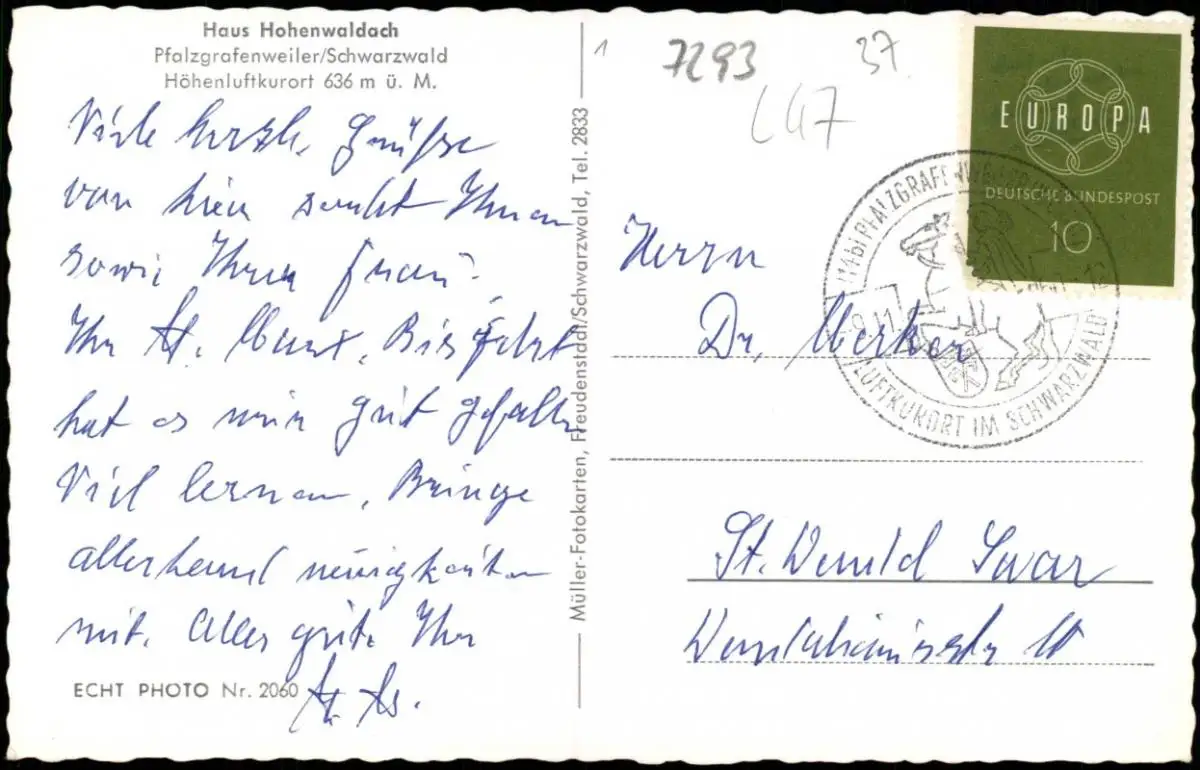 Haus Hohenwaldach
Pfalzgrafenweiler/Schwarzwald
Höhenluftkurort 636 m ü. M.
Viele herzl. Grüße
von hier sendet Ihnen
sowie Ihrer Frau
Ihr
Bis jetzt
hat es mir gut gefallen
Viel lernen, Bringe
allerhand neuigkeiten
mit. Alles gute Ihr
ECHT PHOTO Nr. 2060
Müller-Fotokarten, Freudenstadt/Schwarzwald, Tel. 2833
1
7293
37
L47
EUROPA
DEUTSCHE BUNDESPOST
10
PFALZGRAFENWEILER
LUFTKURORT IM SCHWARZWALD
Herrn
Dr. Merker
St. Wendel Saar